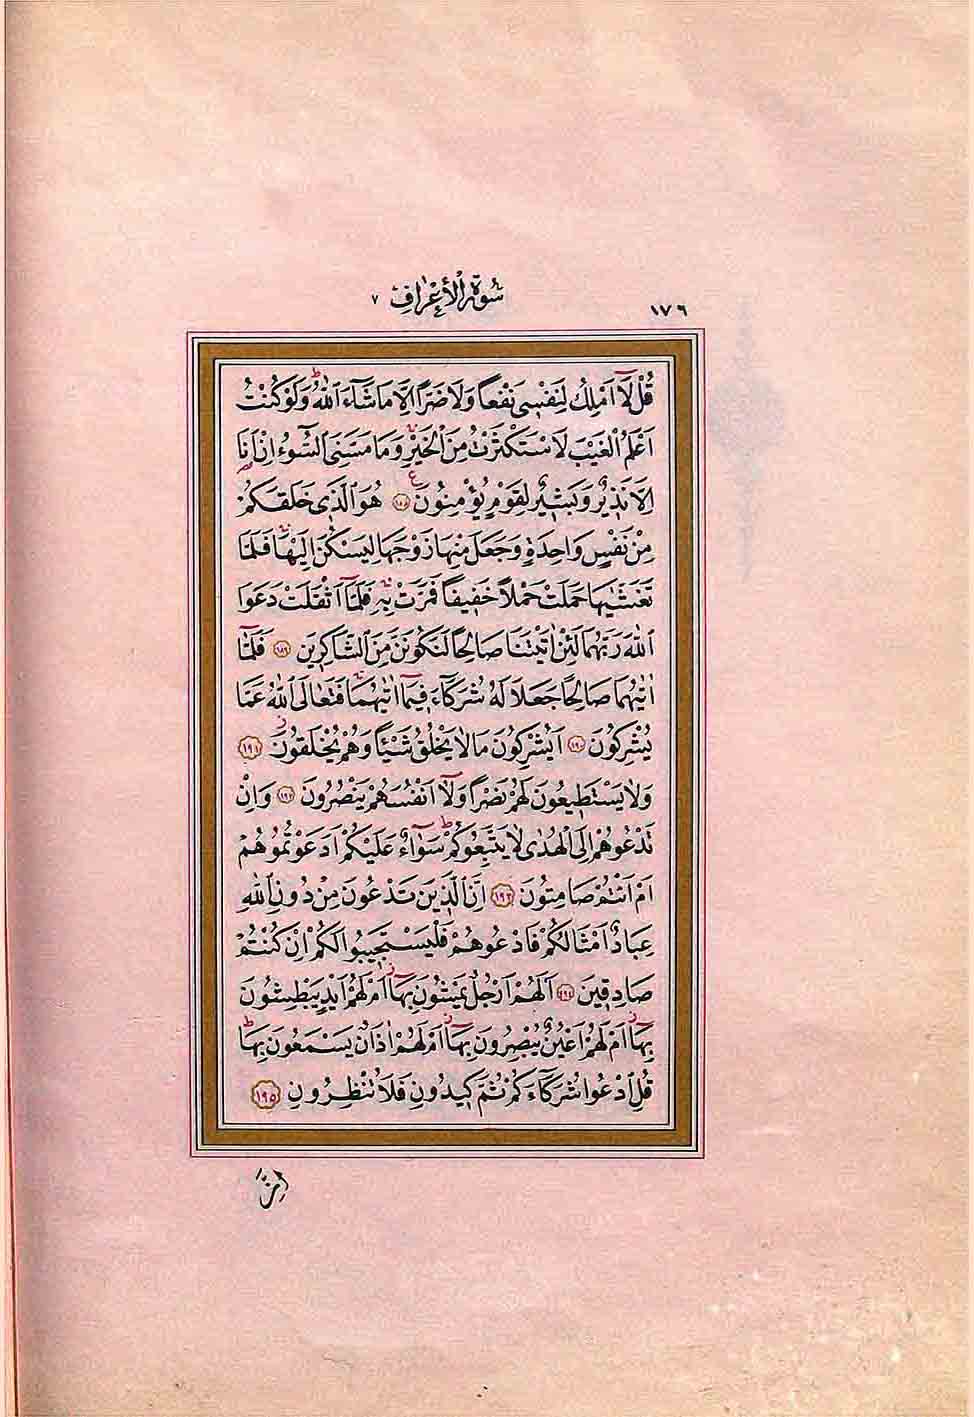 ١٧٦ سُورَةُ الْأَعْرَافِ ٧
قُلْ لَٓا اَمْلِكُ لِنَفْسٖى نَفْعًا وَلَا ضَرًّا اِلَّا مَا شَٓاءَ اللّٰهُؕ وَلَوْ كُنْتُ
اَعْلَمُ الْغَيْبَ لَاسْتَكْثَرْتُ مِنَ الْخَيْرِۚ وَمَا مَسَّنِىَ السُّٓوءُ اِنْ اَنَا
اِلَّا نَذٖيرٌ وَبَشٖيرٌ لِقَوْمٍ يُؤْمِنُونَ ١٨٨ هُوَ الَّذٖى خَلَقَكُمْ
مِنْ نَفْسٍ وَاحِدَةٍ وَجَعَلَ مِنْهَا زَوْجَهَا لِيَسْكُنَ اِلَيْهَاۚ فَلَمَّا
تَغَشّٰيهَا حَمَلَتْ حَمْلًا خَفٖيفًا فَمَرَّتْ بِهٖۚ فَلَمَّٓا اَثْقَلَتْ دَعَوَا
اللّٰهَ رَبَّهُمَا لَئِنْ اٰتَيْتَنَا صَالِحًا لَنَكُونَنَّ مِنَ الشَّاكِرٖينَ ١٨٩ فَلَمَّٓا
اٰتٰيهُمَا صَالِحًا جَعَلَا لَهُ شُرَكَٓاءَ فٖيمَٓا اٰتٰيهُمَاۚ فَتَعَالَى اللّٰهُ عَمَّا
يُشْرِكُونَ ١٩٠ اَيُشْرِكُونَ مَا لَا يَخْلُقُ شَيْـًٔا وَهُمْ يُخْلَقُونَؗ ١٩١
وَلَا يَسْتَطٖيعُونَ لَهُمْ نَصْرًا وَلَٓا اَنْفُسَهُمْ يَنْصُرُونَ ١٩٢ وَاِنْ
تَدْعُوهُمْ اِلَى الْهُدٰى لَا يَتَّبِعُوكُمْؕ سَوَٓاءٌ عَلَيْكُمْ اَدَعَوْتُمُوهُمْ
اَمْ اَنْتُمْ صَامِتُونَ ١٩٣ اِنَّ الَّذٖينَ تَدْعُونَ مِنْ دُونِ اللّٰهِ
عِبَادٌ اَمْثَالُكُمْ فَادْعُوهُمْ فَلْيَسْتَجٖيبُوا لَكُمْ اِنْ كُنْتُمْ
صَادِقٖينَ ١٩٤ اَلَهُمْ اَرْجُلٌ يَمْشُونَ بِهَٓاؗ اَمْ لَهُمْ اَيْدٍ يَبْطِشُونَ
بِهَٓاؗ اَمْ لَهُمْ اَعْيُنٌ يُبْصِرُونَ بِهَٓاؗ اَمْ لَهُمْ اٰذَانٌ يَسْمَعُونَ بِهَاؕ
قُلِ ادْعُوا شُرَكَٓاءَكُمْ ثُمَّ كٖيدُونِ فَلَا تُنْظِرُونِ ١٩٥
اِنَّ